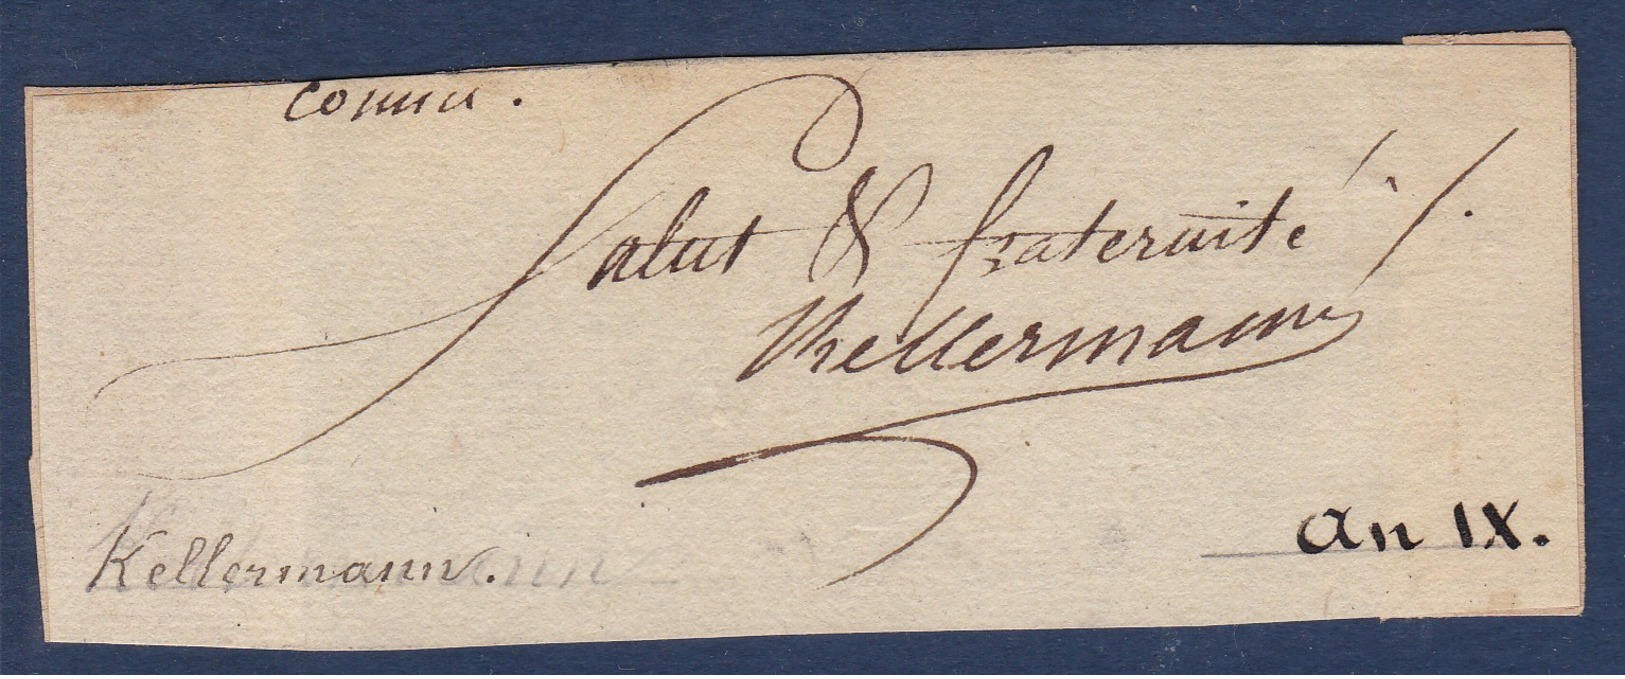 connu.
Salut & fraternité
Kellermann
Kellermann.
An IX.